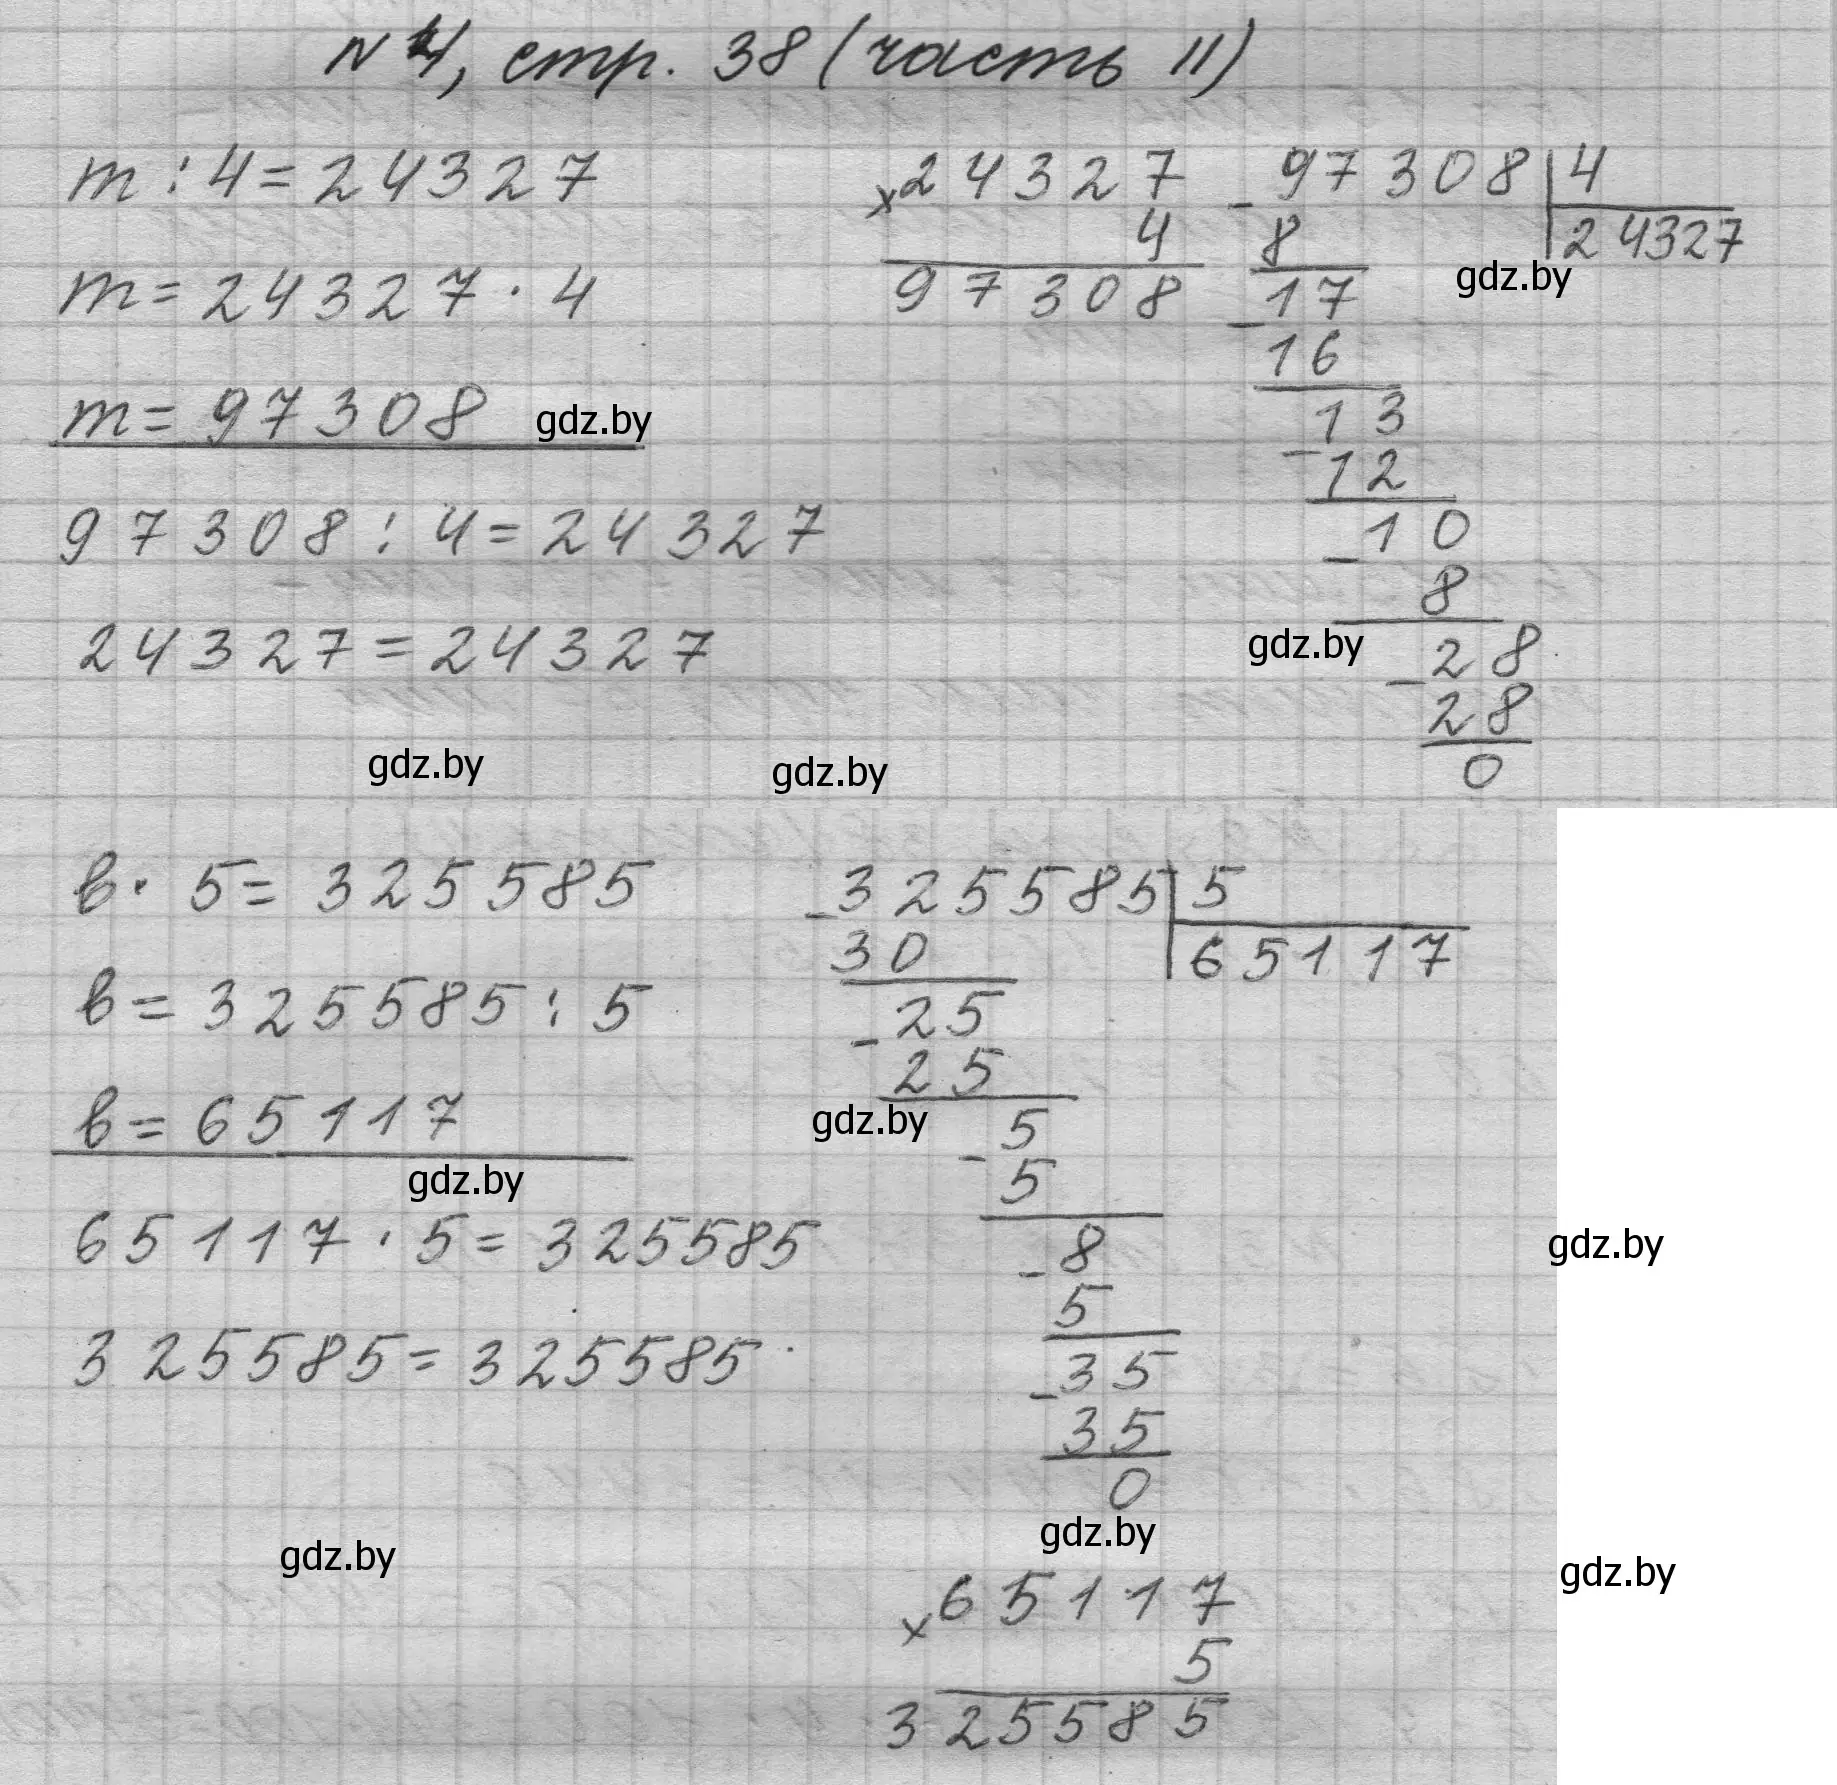 № 4, стр. 38 (часть II)
m : 4 = 24327
m = 24327 · 4
m = 97308
gdz.by
97308 : 4 = 24327
24327 = 24327
gdz.by
gdz.by
× 24327
4
97308
- 97308 | 4
8 | 24327
gdz.by
- 17
16
- 13
12
- 10
8
gdz.by
- 28
28
0
в · 5 = 325585
в = 325585 : 5
в = 65117
gdz.by
65117 · 5 = 325585
325585 = 325585
gdz.by
- 325585 | 5
30 | 65117
- 25
25
gdz.by
- 5
5
- 8
5
- 35
35
0
gdz.by
× 65117
5
325585
gdz.by
gdz.by